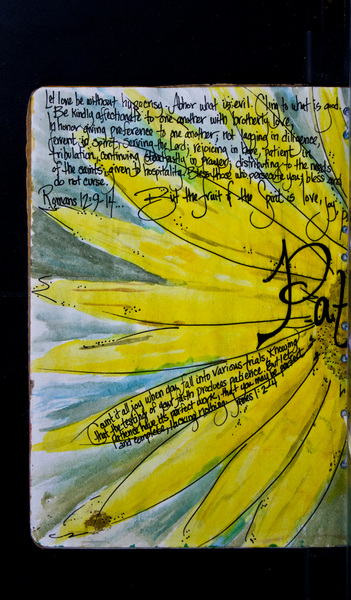 Let love be without hypocrisy. Abhor what is evil. Cling to what is good.
Be kindly affectionate to one another with brotherly love,
in honor giving preference to one another; not lagging in diligence,
fervent in spirit, serving the Lord; rejoicing in hope, patient in
tribulation, continuing steadfastly in prayer; distributing to the needs
of the saints, given to hospitality. Bless those who persecute you; bless and
do not curse.
Romans 12:9-14... But the fruit of the Spirit is love, joy,
Pat
Count it all joy when you fall into various trials, knowing
that the testing of your faith produces patience. But let
patience have its perfect work, that you may be perfect
and complete, lacking nothing. James 1:2-4